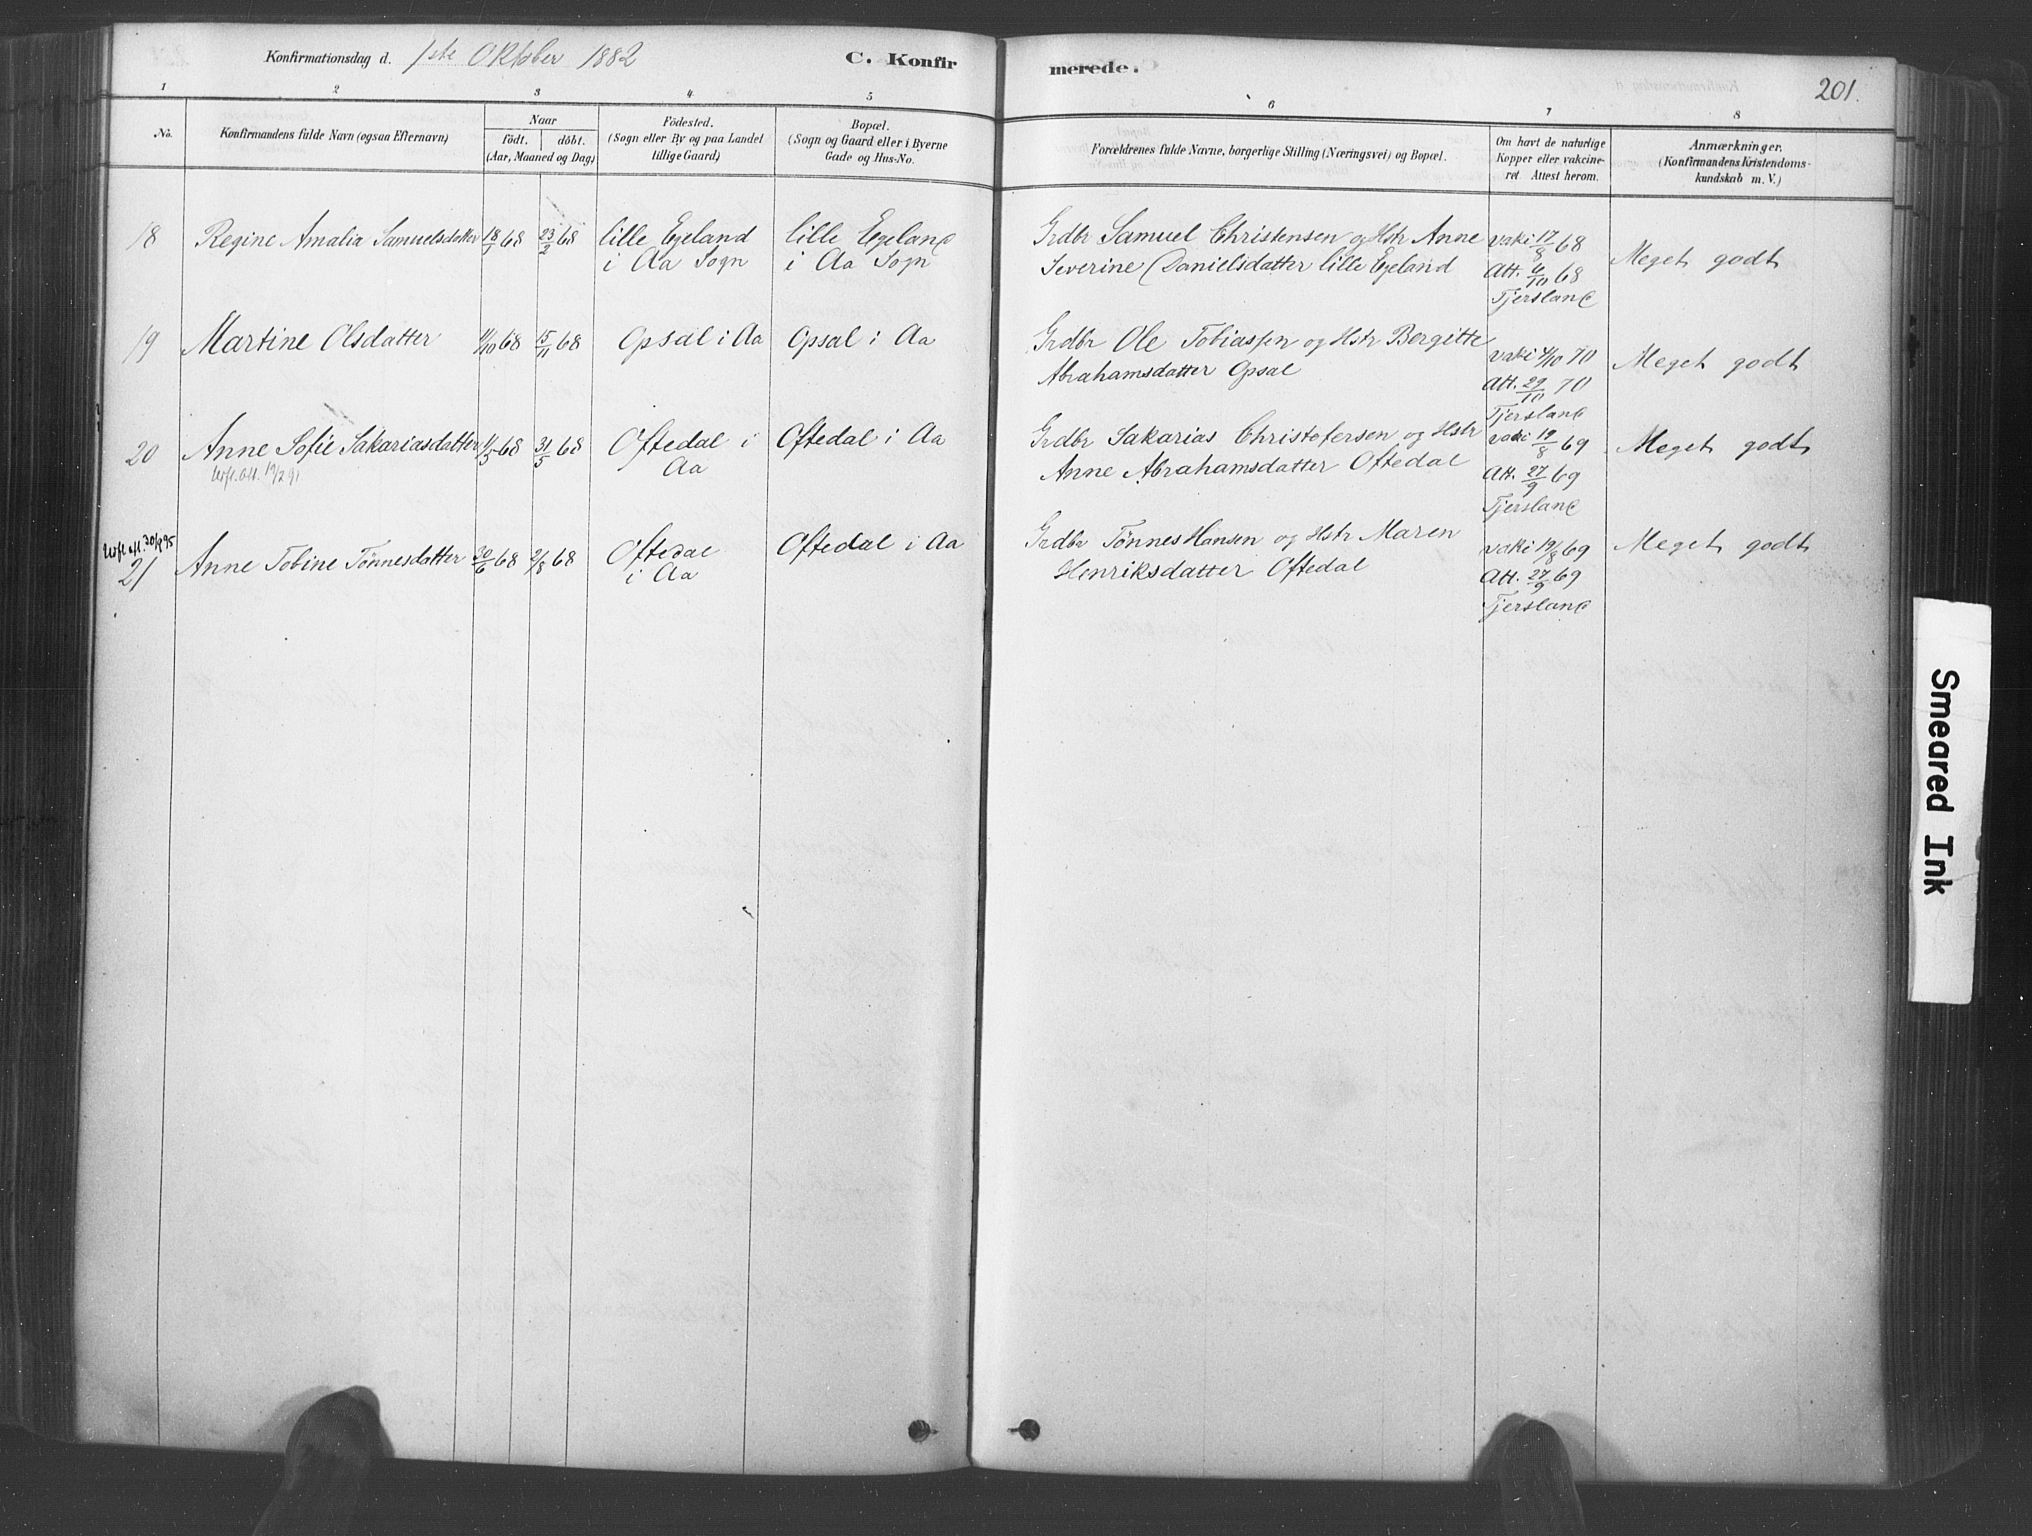 Konfirmationsdag d. 1ste Oktober 1882
C. Konfirmerede.
201.
1 2 3 4 5 6 7 8
No.
Konfirmandens fulde Navn (ogsaa Efternavn)
Naar
födt. döbt.
(Aar, Maaned og Dag)
Födested.
(Sogn eller By og paa Landet
tillige Gaard)
Bopæl.
(Sogn og Gaard eller i Byerne
Gade og Hus-No.
Forældrenes fulde Navne, borgerlige Stilling (Næringsvei) og Bopæl.
Om havt de naturlige
Kopper eller vakcine-
ret. Attest herom.
Anmærkninger.
(Konfirmandens Kristendoms-
kundskab m. V.)
18 Regine Amalia Samuelsdatter 18/9 68 23/2 68
lille Egeland
i Aa Sogn
lille Egeland
i Aa Sogn
Grdbr Samuel Christensen og Hstr Anne
Severine Danielsdatter lille Egeland
vaki 17/8 68
Att. 6/10 68
Tjersland
Meget godt
19 Martine Olsdatter 11/10 68 15/11 68
Opsal i Aa
Opsal i Aa
Grdbr Ole Tobiassen og Hstr Bergitte
Abrahamsdatter Opsal
vaki 4/10 70
Att. 29/10 70
Tjersland
Meget godt
20 Anne Sofie Sakariasdatter 11/5 68 31/5 68
att. 19/2 91
Oftedal i
Aa
Oftedal i Aa
Grdbr Sakarias Christofersen og Hstr
Anne Abrahamsdatter Oftedal
vaki 19/8 69
Att. 27/9 69
Tjersland
Meget godt
21 Anne Tobine Tönnesdatter 30/6 68 2/8 68
Oftedal
i Aa
Oftedal i Aa
Grdbr Tönnes Hansen og Hstr Maren
Henriksdatter Oftedal
vaki 19/8 69
Att. 27/9 69
Tjersland
Meget godt
Smeared Ink